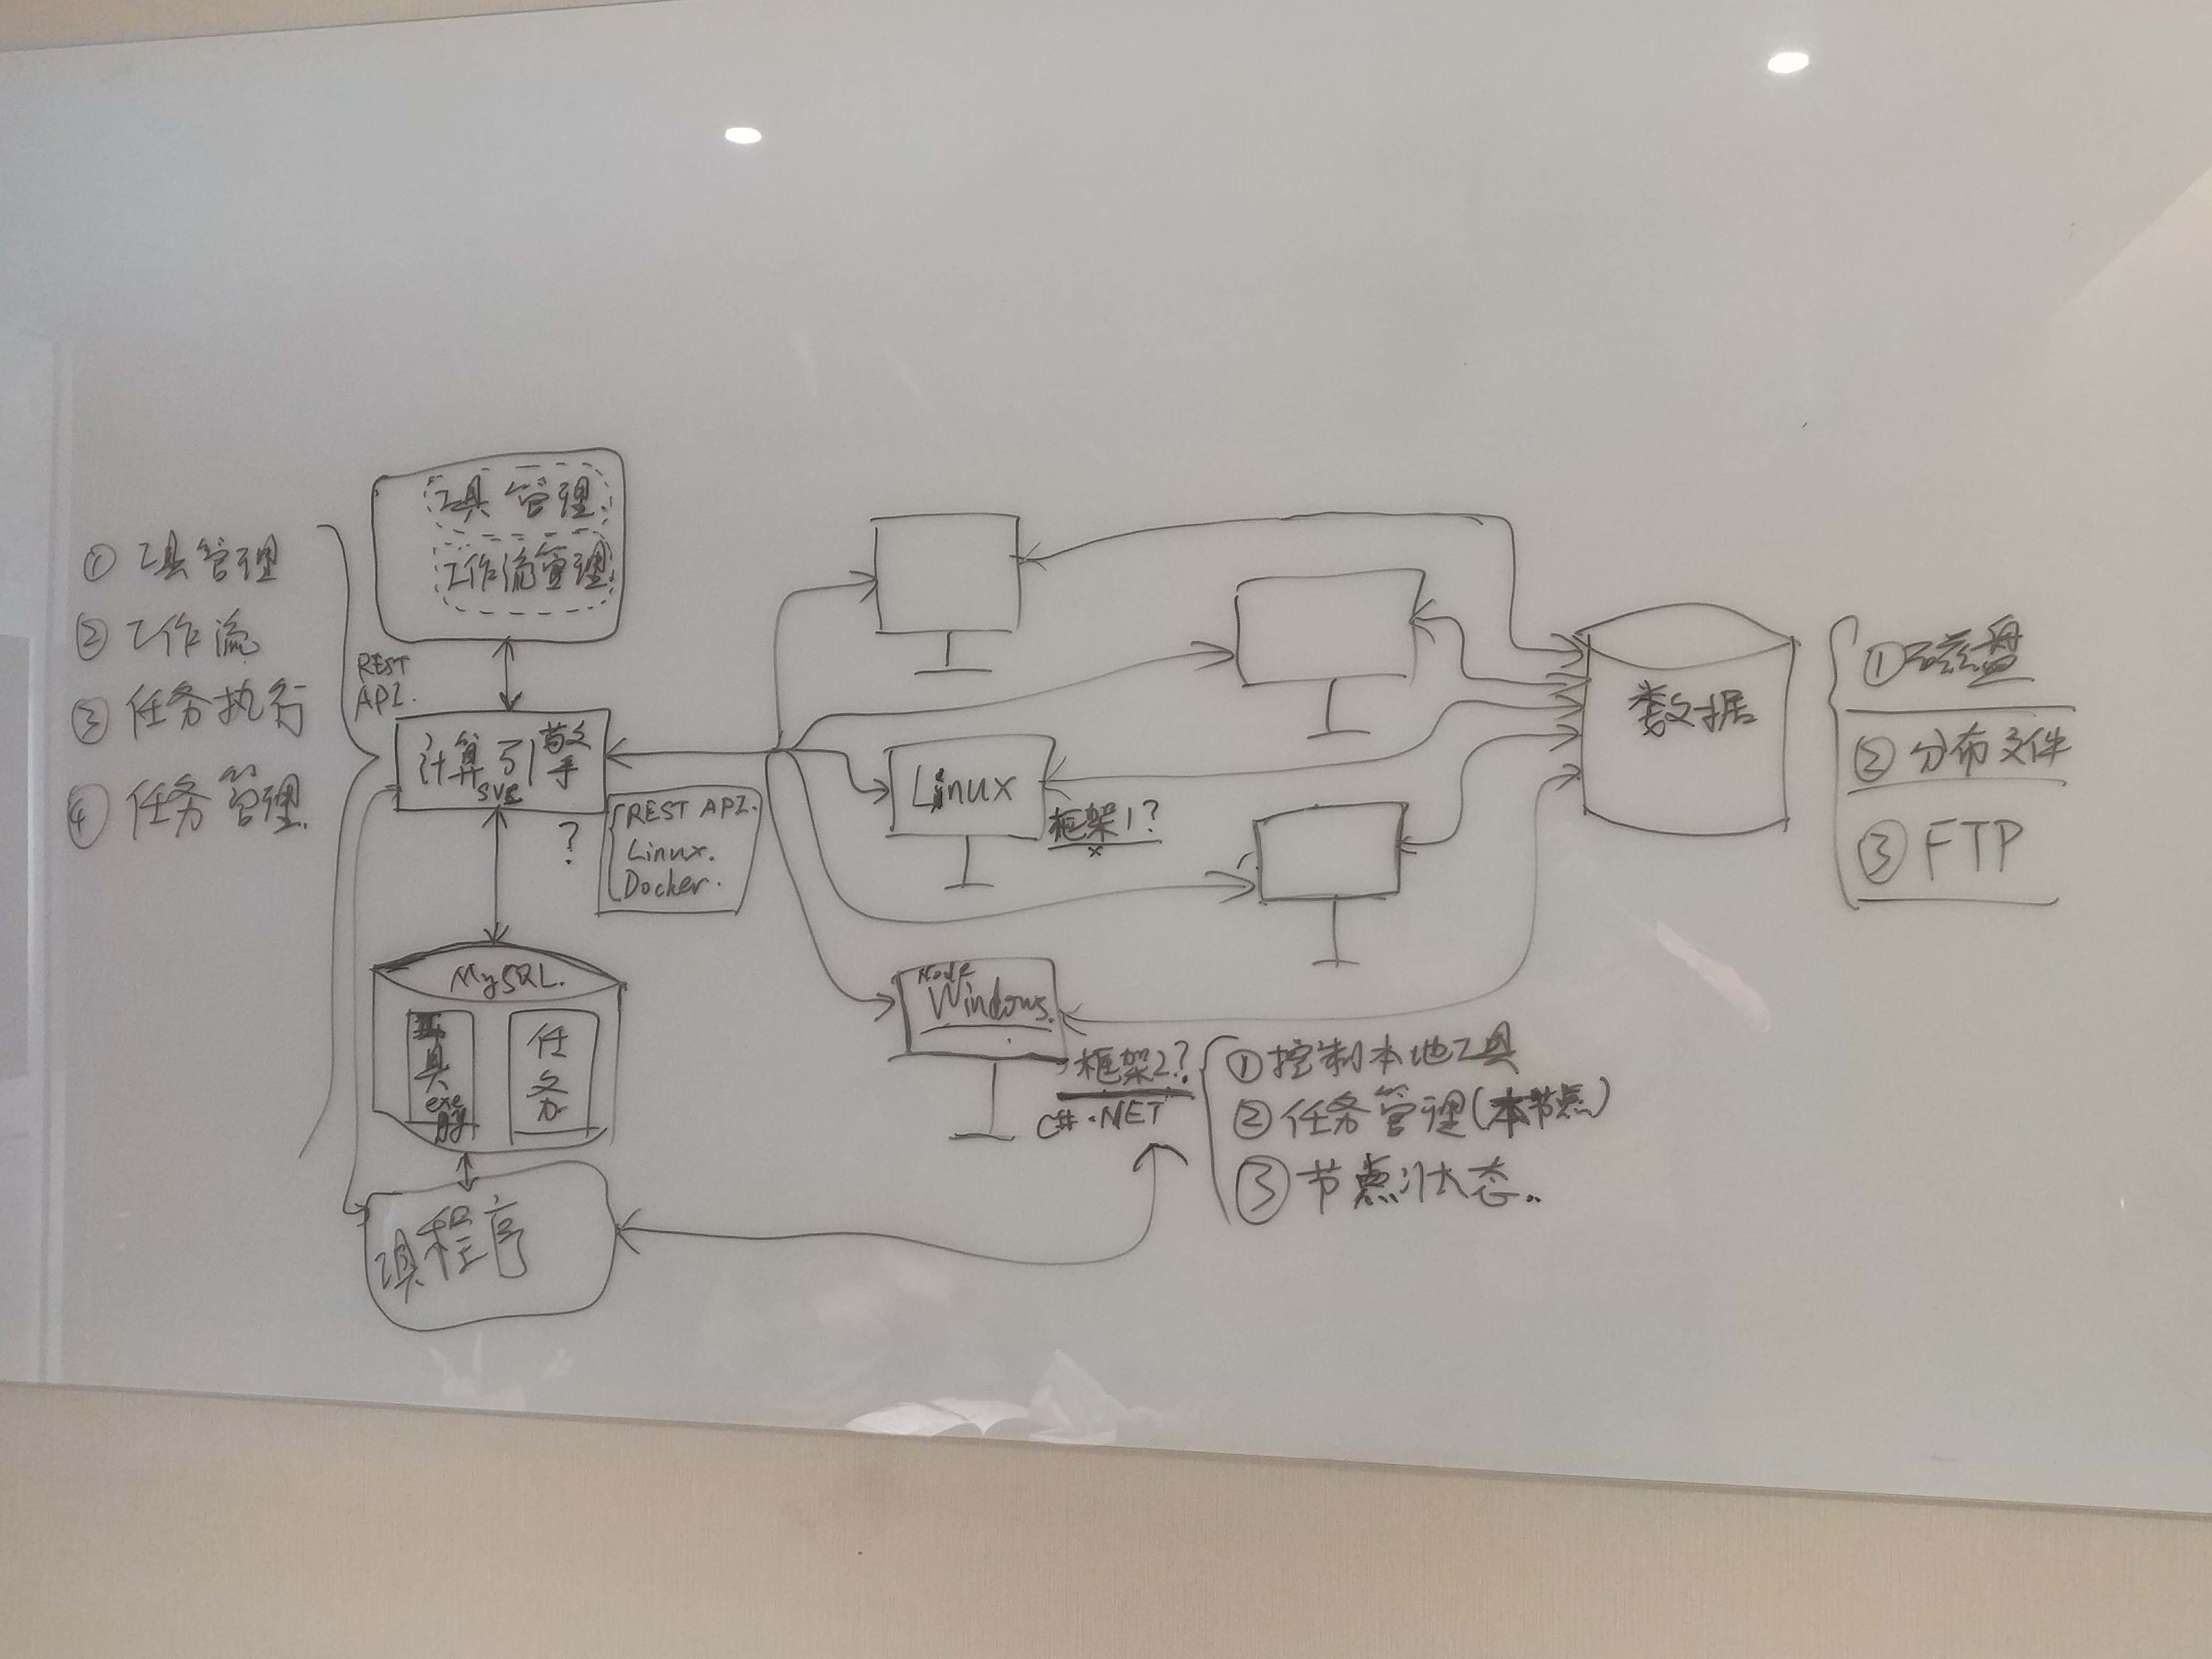 ① 工具管理
② 工作流
③ 任务执行
④ 任务管理
工具管理
工作流管理
REST
API.
计算引擎
SVR
?
REST API.
Linux.
Docker.
MySQL.
工具
exe
任务
工具程序
Linux
框架1?
×
Node
Windows.
框架2?
C# .NET
① 控制本地工具
② 任务管理(本节点)
③ 节点状态..
数据
① 磁盘
② 分布文件
③ FTP